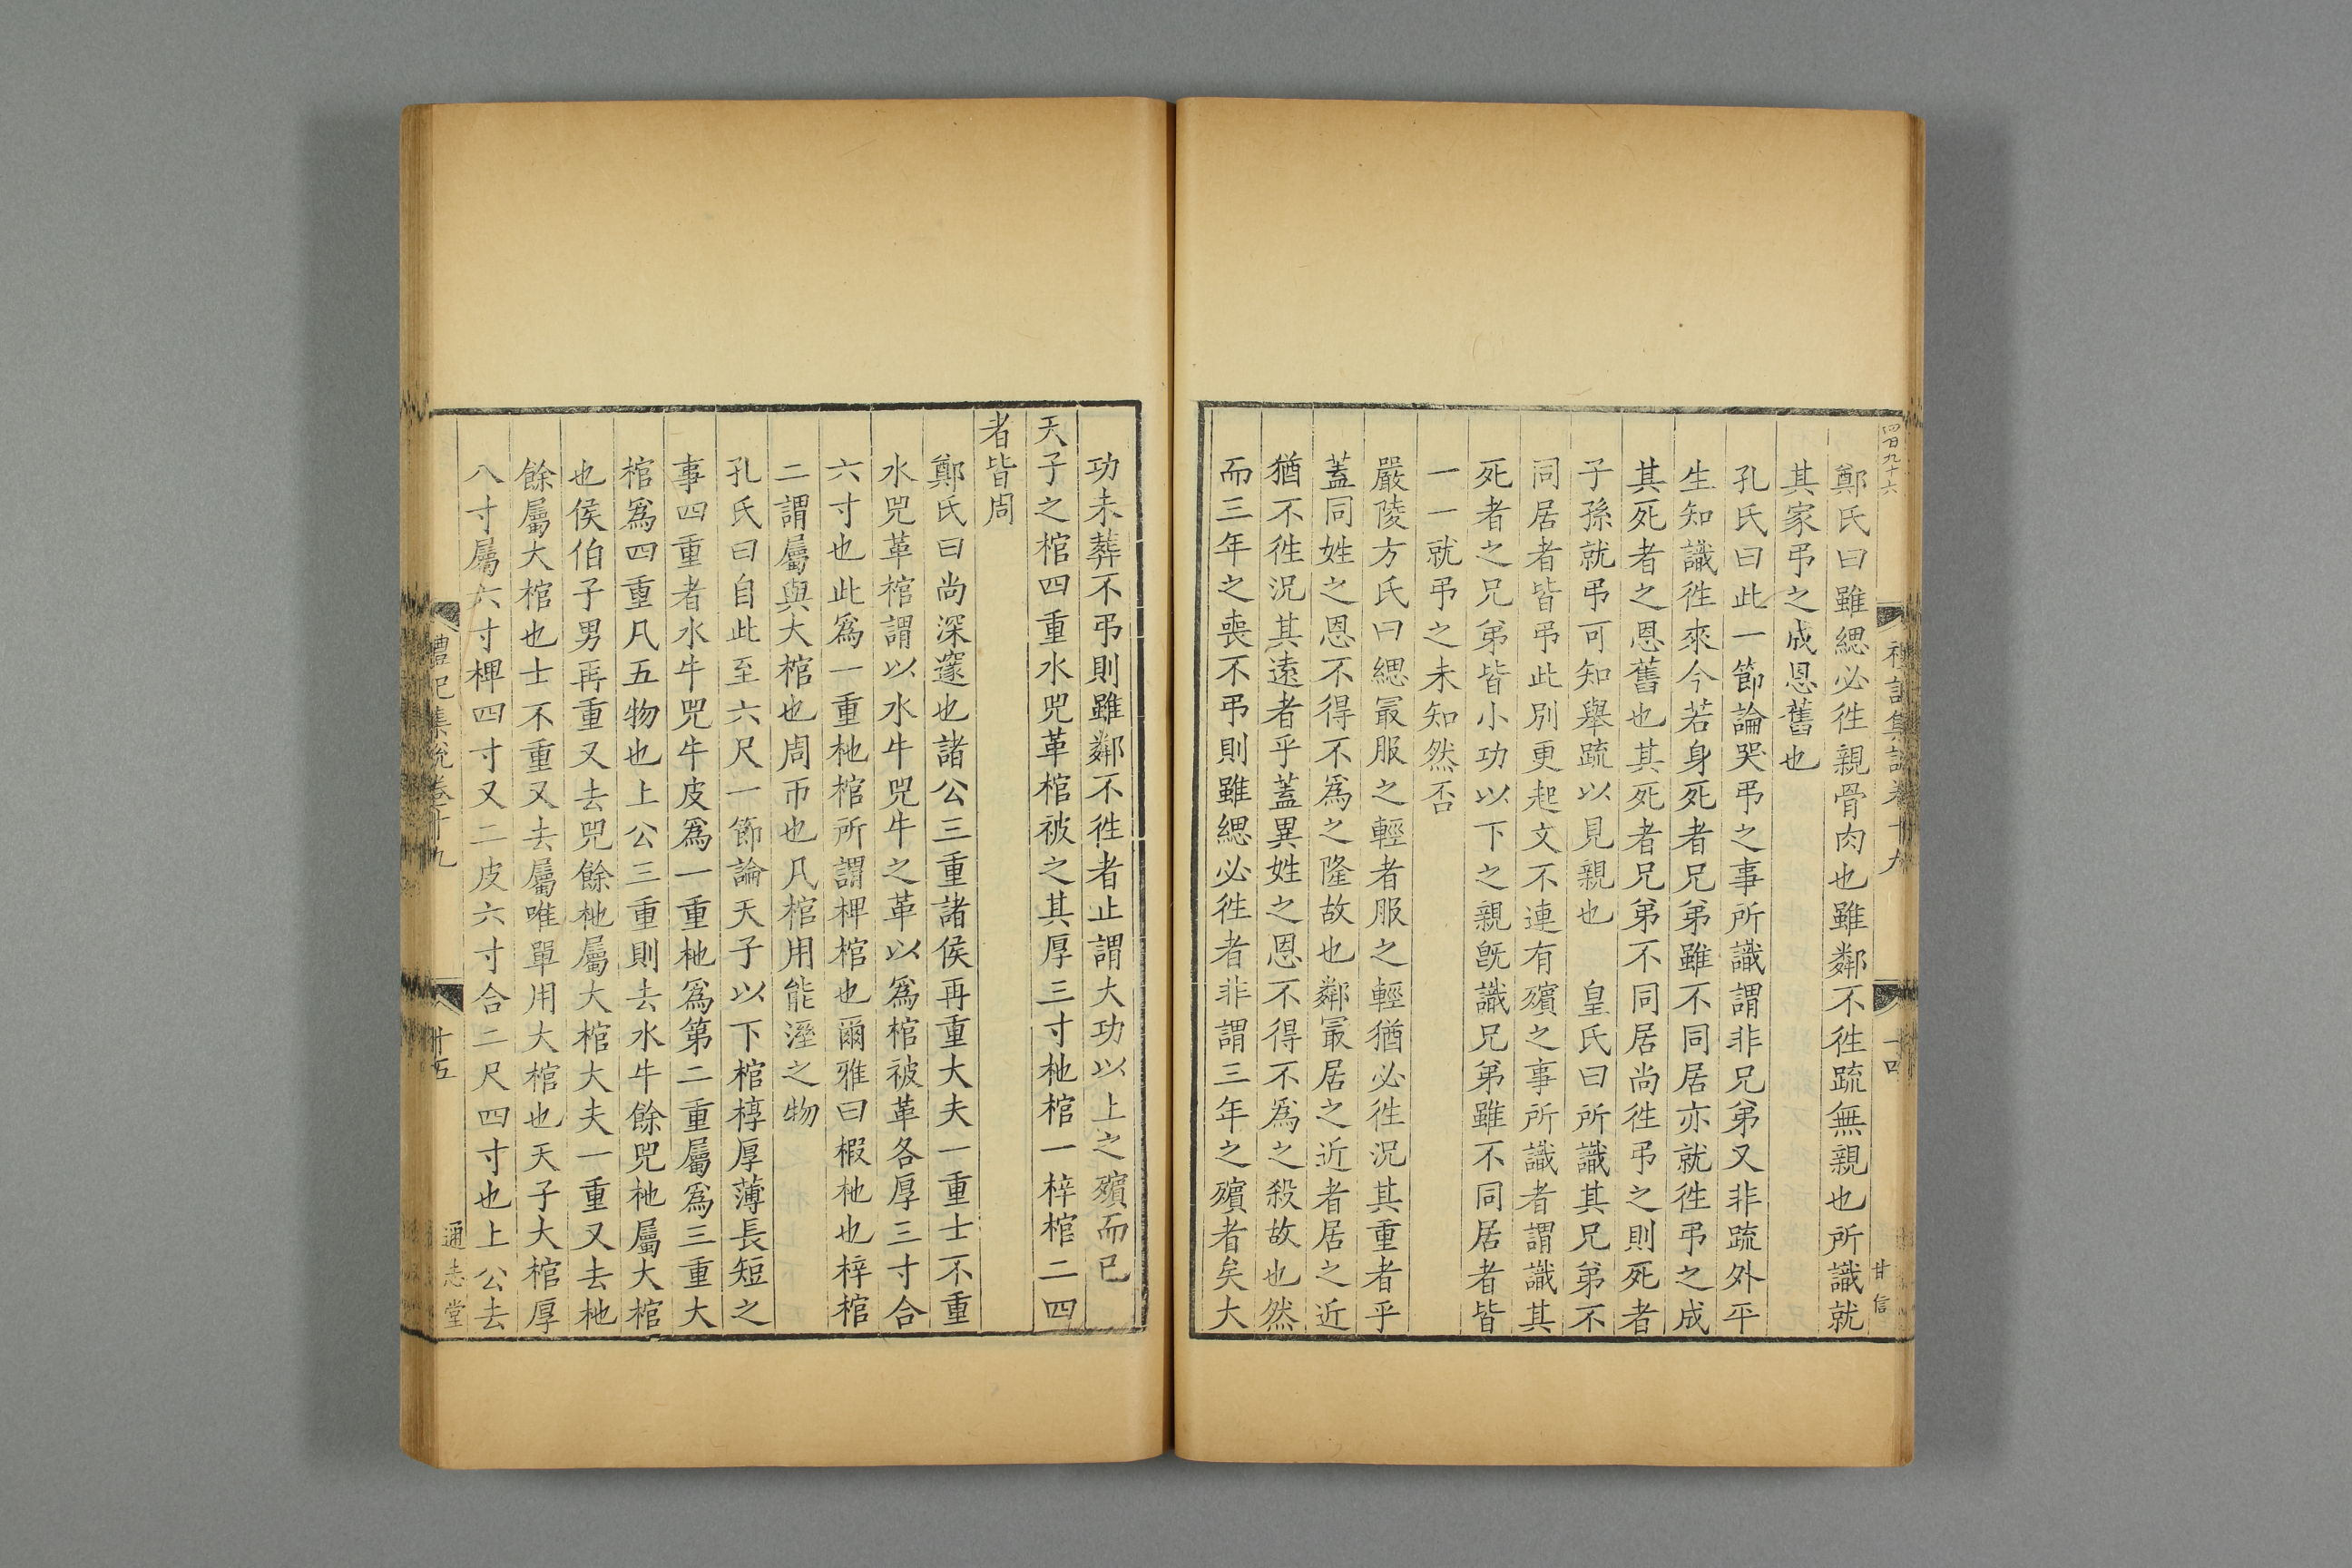 四百九十六
鄭氏曰雖緦必徃親骨肉也雖鄰不徃疏無親也所識就
其家弔之成恩舊也
孔氏曰此一節論哭弔之事所識謂非兄弟又非疏外平
生知識徃來今若身死者兄弟雖不同居亦就徃弔之成
其死者之恩舊也其死者兄弟不同居尚徃弔之則死者
子孫就弔可知舉疏以見親也　皇氏曰所識其兄弟不
同居者皆弔此別更起文不連有殯之事所識者謂識其
死者之兄弟皆小功以下之親旣識兄弟雖不同居者皆
一一就弔之未知然否
嚴陵方氏曰緦㝡服之輕者服之輕猶必徃況其重者乎
蓋同姓之恩不得不爲之隆故也鄰㝡居之近者居之近
猶不徃況其遠者乎蓋異姓之恩不得不爲之殺故也然
而三年之喪不弔則雖緦必徃者非謂三年之殯者矣大
甘信
功未葬不弔則雖鄰不徃者止謂大功以上之殯而已
天子之棺四重水兕革棺被之其厚三寸杝棺一梓棺二四
者皆周
鄭氏曰尚深邃也諸公三重諸侯再重大夫一重士不重
水兕革棺謂以水牛兕牛之革以爲棺被革各厚三寸合
六寸也此爲一重杝棺所謂椑棺也爾雅曰椵杝也梓棺
二謂屬與大棺也周帀也凡棺用能溼之物
孔氏曰自此至六尺一節論天子以下棺椁厚薄長短之
事四重者水牛兕牛皮爲一重杝爲第二重屬爲三重大
棺爲四重凡五物也上公三重則去水牛餘兕杝屬大棺
也侯伯子男再重又去兕餘杝屬大棺大夫一重又去杝
餘屬大棺也士不重又去屬唯單用大棺也天子大棺厚
八寸屬六寸椑四寸又二皮六寸合二尺四寸也上公去
禮記集說卷十九
十五
通志堂